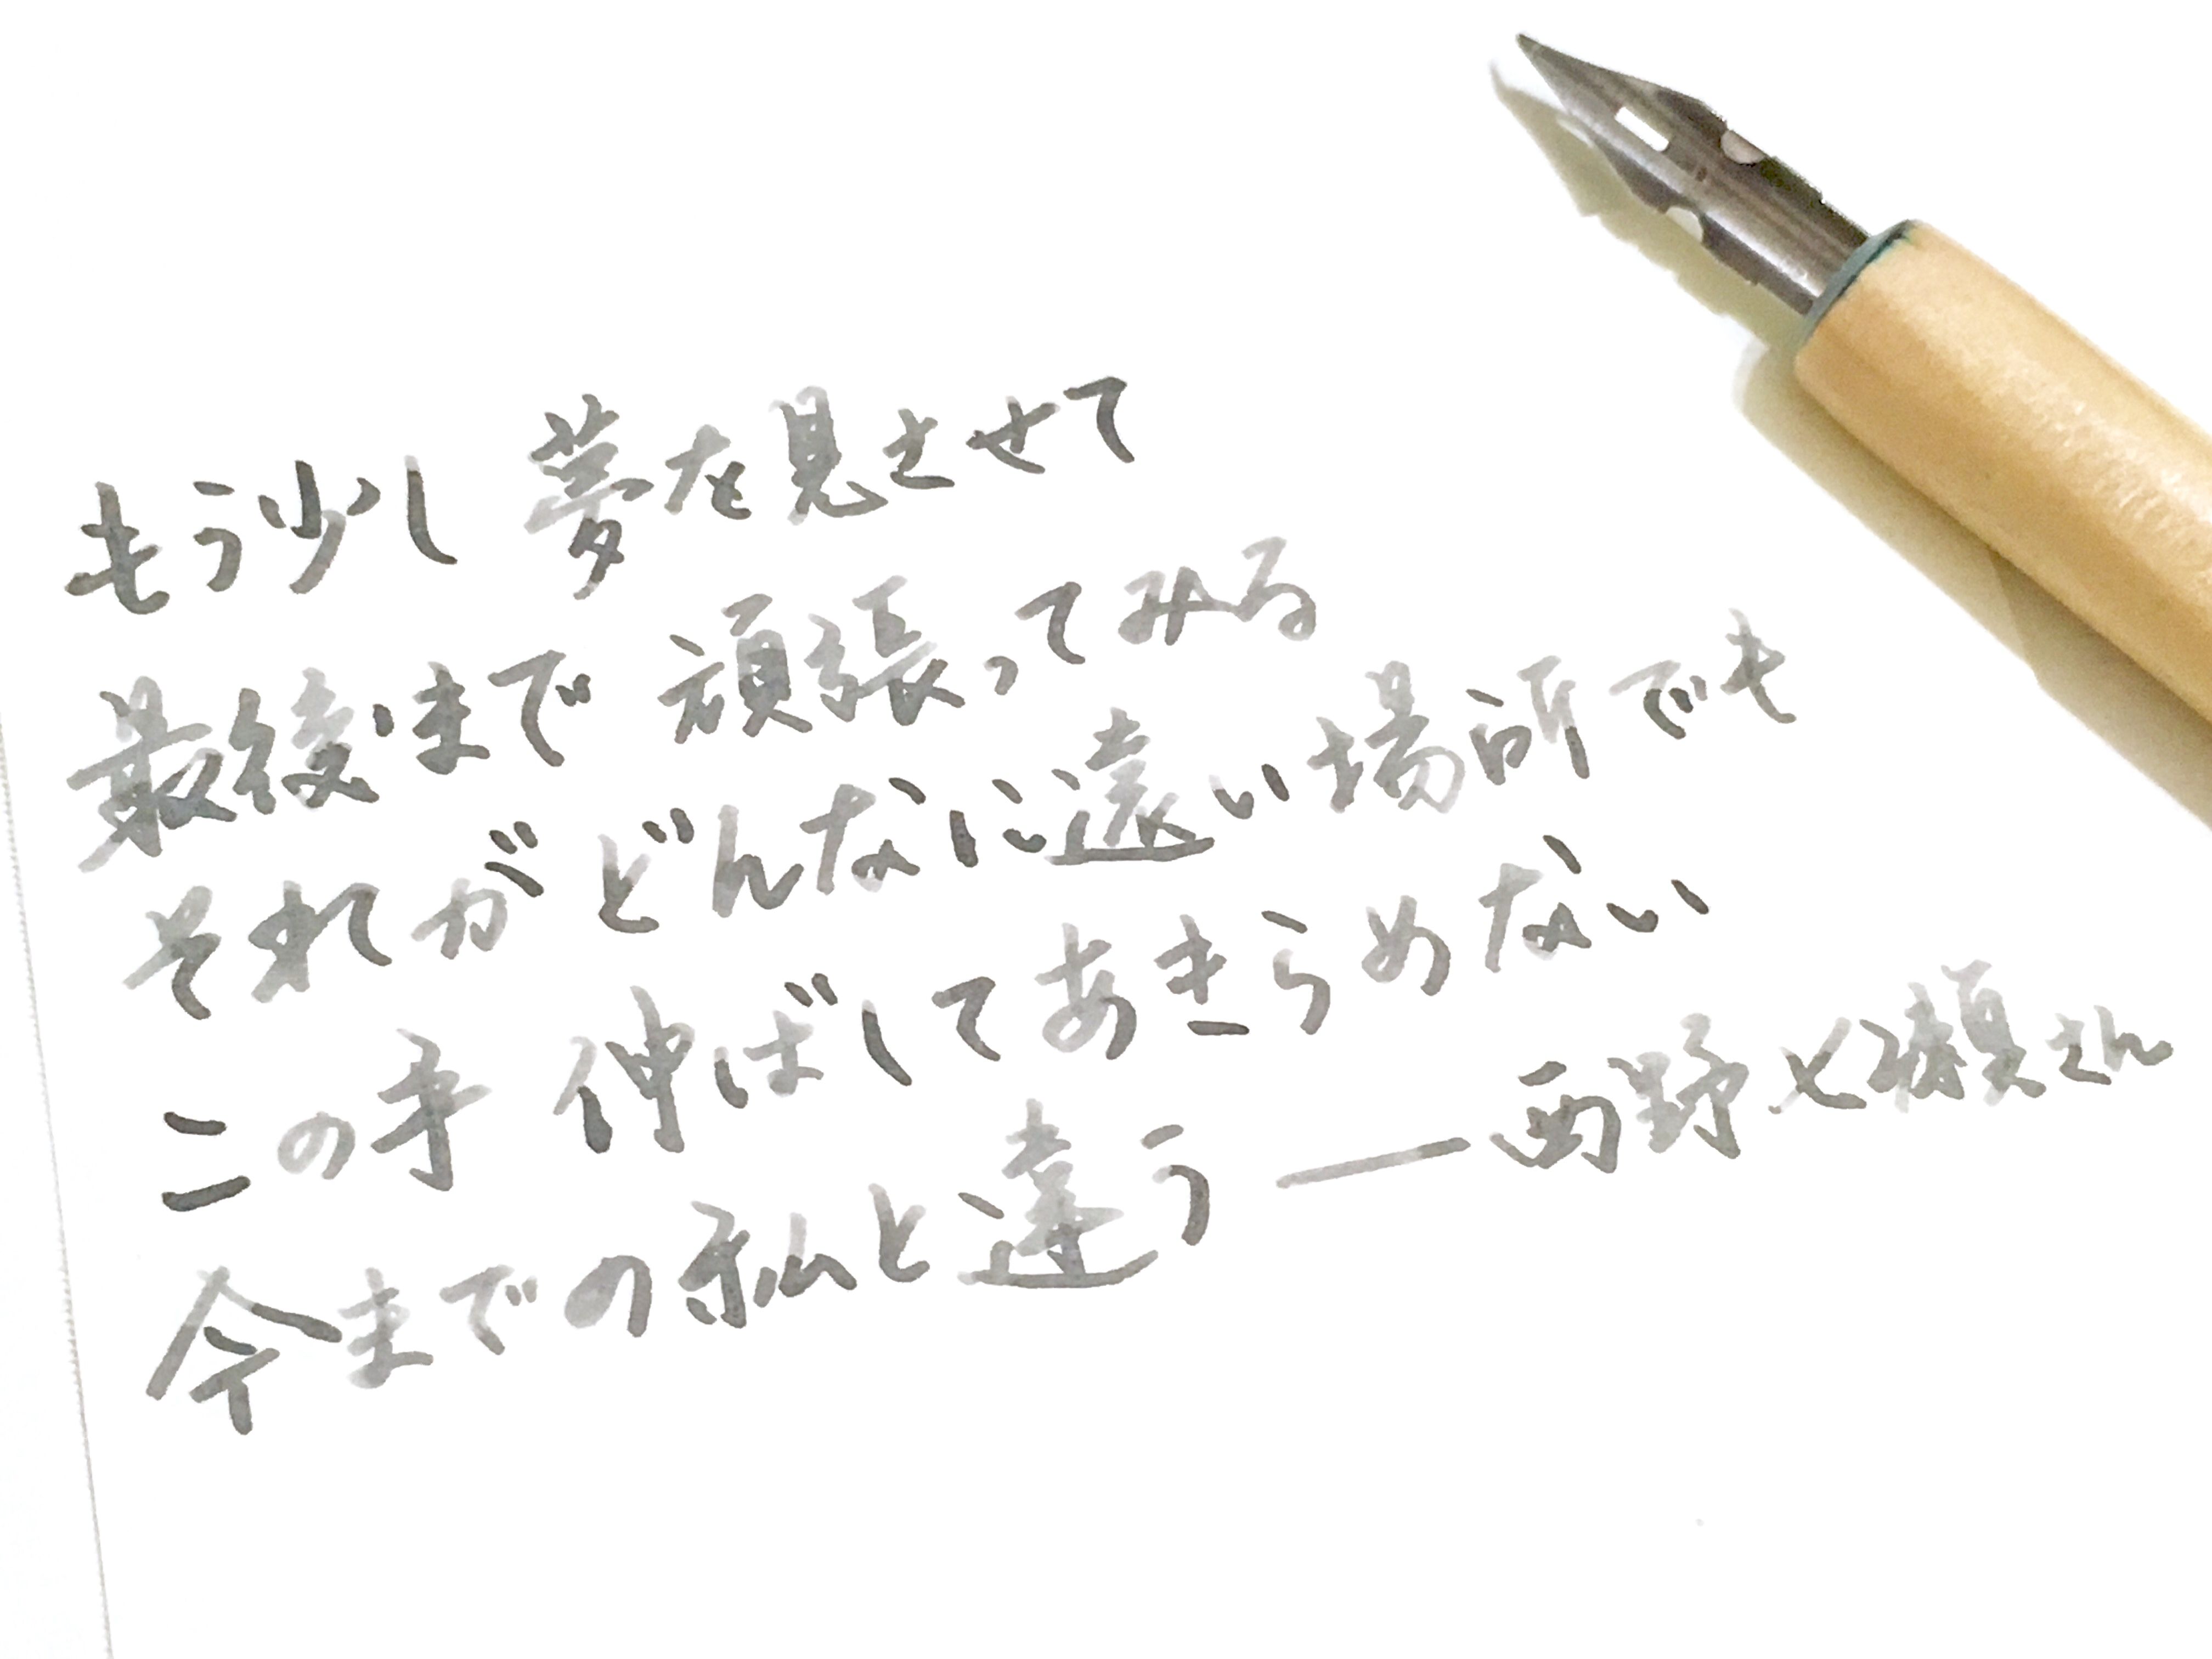 もう少し 夢を見させて
最後まで 頑張ってみる
それがどんなに遠い場所でも
この手 伸ばしてあきらめない
今までの私と違う ―西野七瀬さん